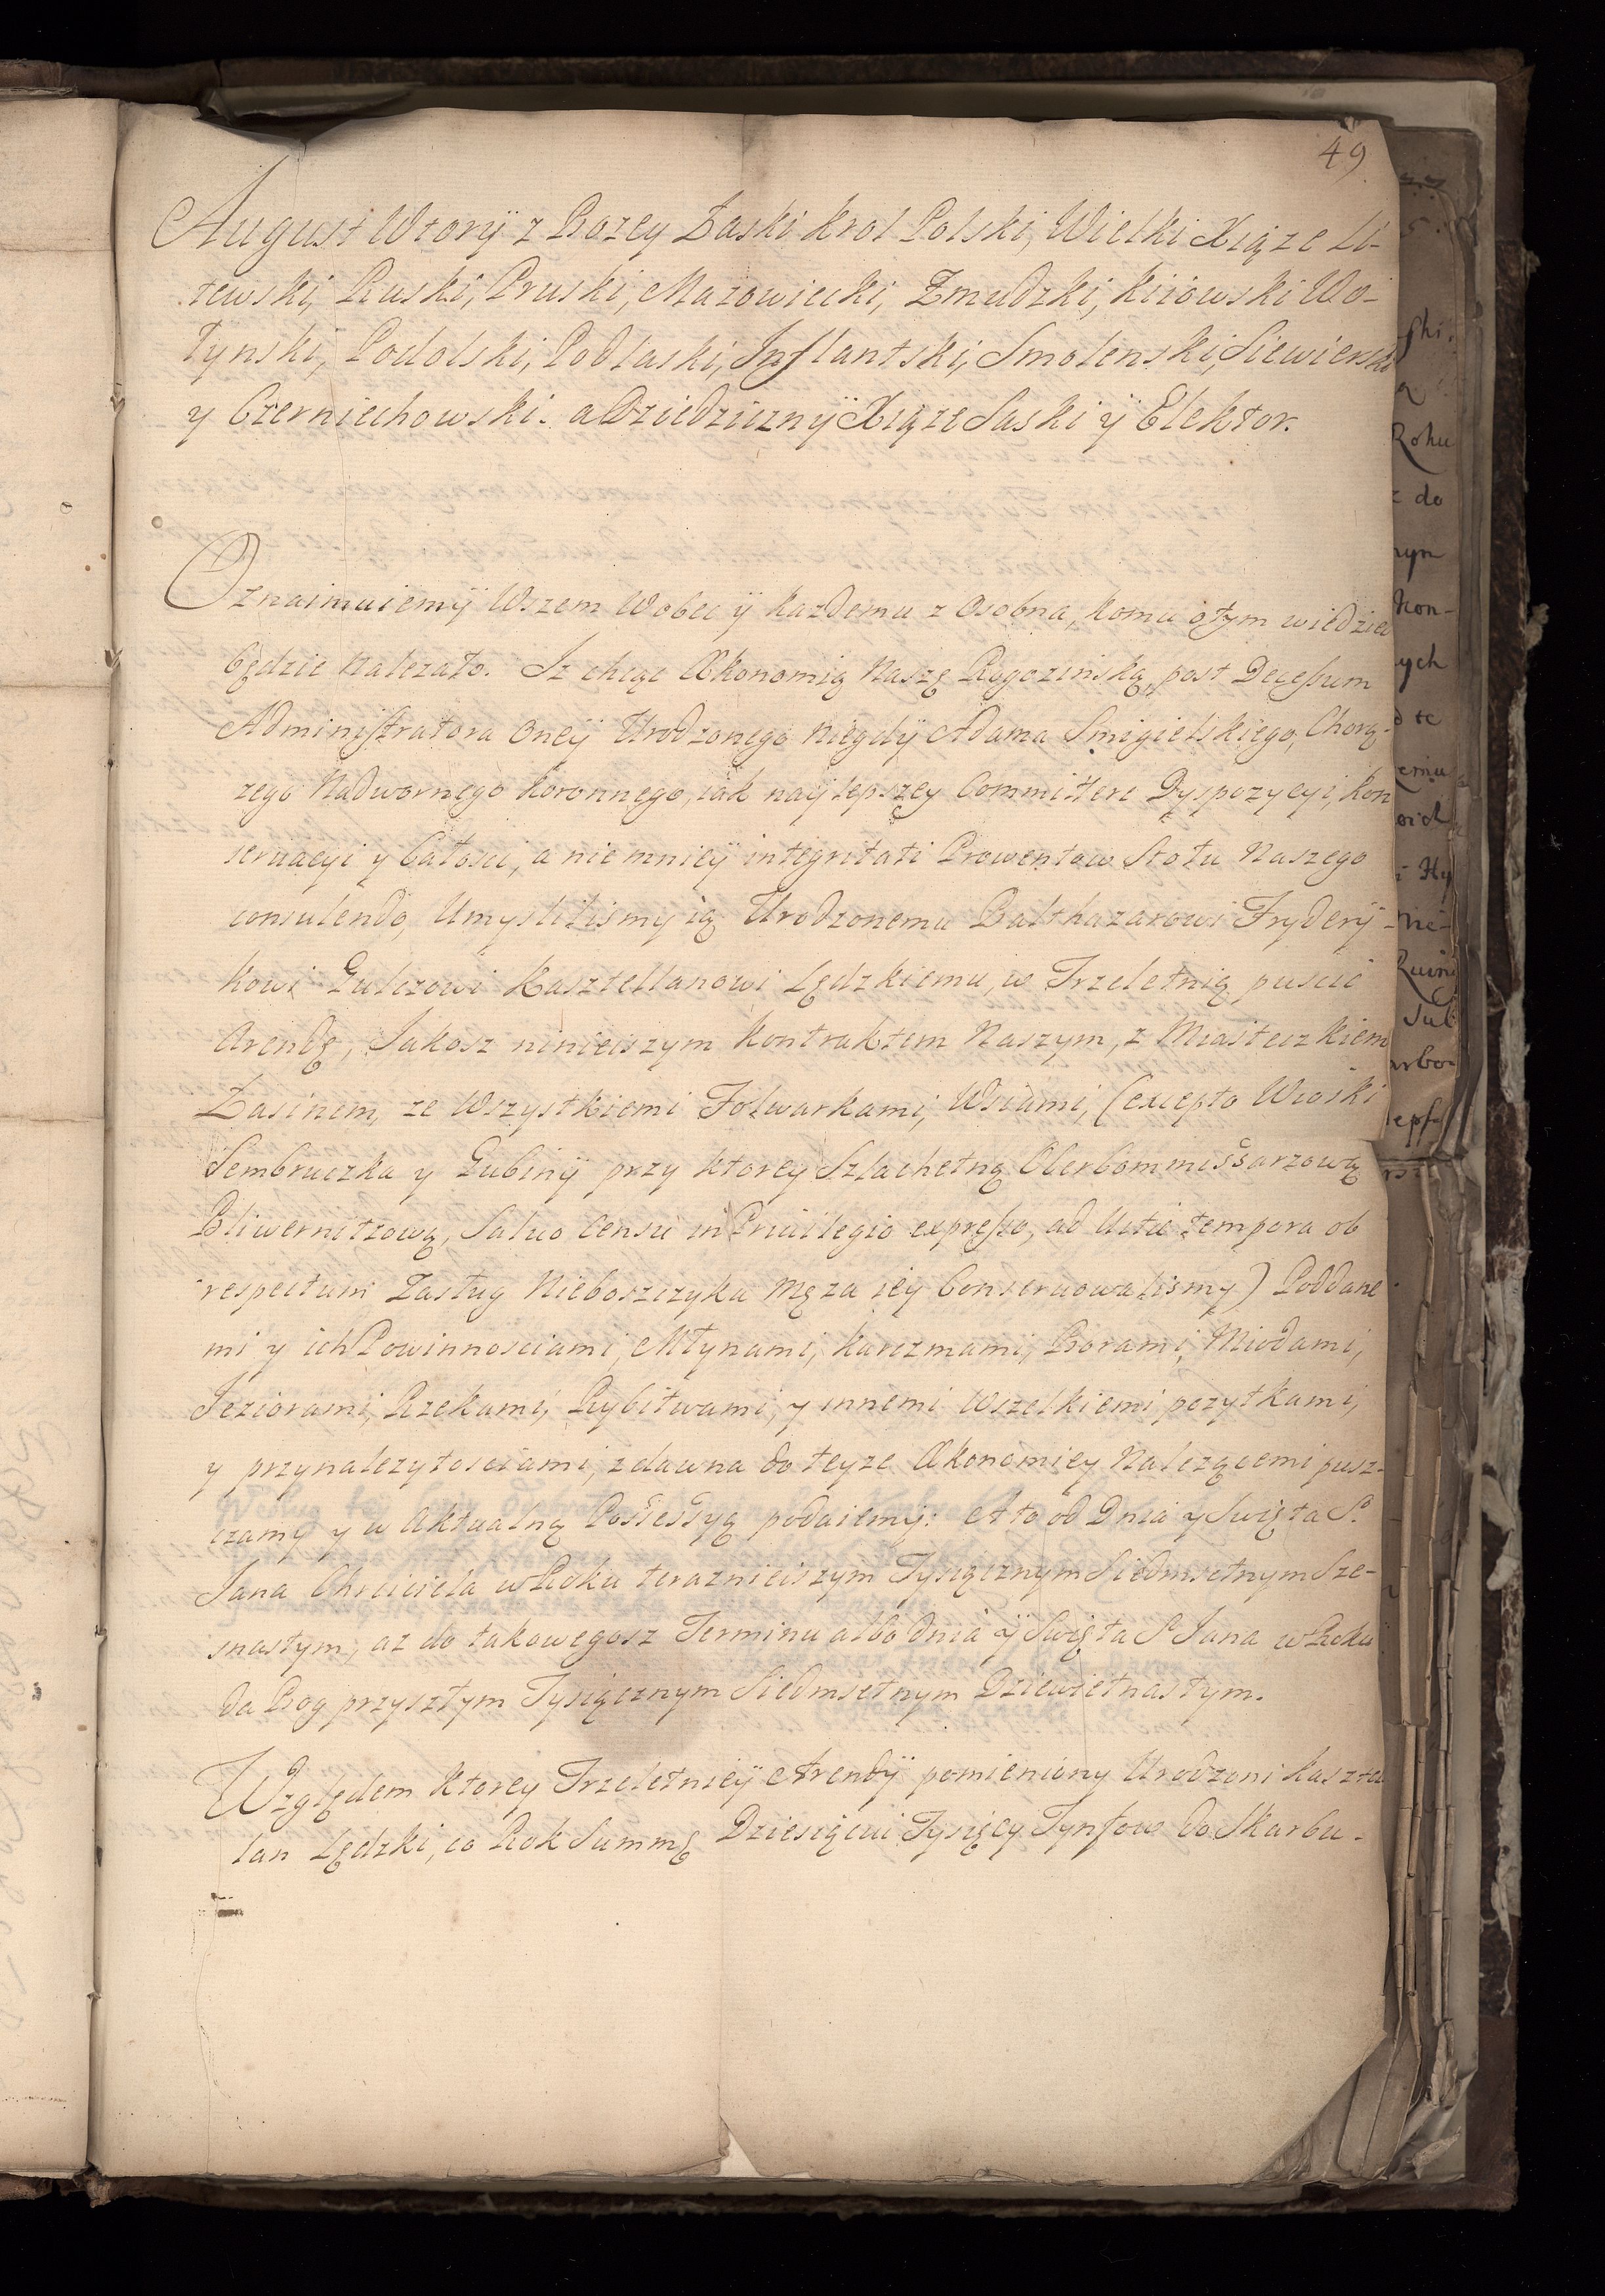 49
August Wtorÿ z Bozey Łaski Krol Polski, Wielki Xiąze Li-
tewski, Ruski, Pruski, Mazowiecki, Zmudzki, Kiiowski Wo-
łynski, Podolski, Podlaski, Inflantski, Smolenski, Siewierski
y Czerniechowski. a Dziedzicznÿ Xiąze Saski ÿ Elektor.
Oznaimuiemÿ Wszem Wobec ÿ kazdemu z Osobna, komu otym wiedziec
będzie nalezało. Iz chcąc Œkonomią Naszę Rogozińską, post Decessum
Administratora Oneÿ Urodzonego niegdÿ Adama Smigielskiego, Chorą-
zego Nadwornego Koronnego, iak naÿlepszey Committere Dyspozycyi, Kon
seruacyi y Całosci, a niemnieÿ integritati Prowentow Stołu Naszego
consulendo, Umyslilismy ią Urodzonemu Balthazarowi Frÿderÿ-
kowi Gulczowi Kasztellanowi Lędzkiemu, w Trzeletnią puscic
Arendę, Jakosz ninieiszym Kontraktem Naszym, z Miasteczkiem
Łasinem, ze Wszystkiemi Folwarkami, Wsiami, (excepto Wioski
Sembruczka y Gubinÿ przy ktorey Szlachetną Obercommissarzową
Bliwernitzową, Saluo Censu in Priuilegio expresso, ad Uitæ tempora ob
respectum Zasług Nieboszczyka Męza ieÿ Conseruowalismy) Poddane
mi y ich Powinnosciami, Młynami, karczmami, Borami, Miodami,
Jeziorami, Rzekami, Rybitwami, y innemi Wszelkiemi pozytkami,
y przynalezytosciami, zdawna do teyze Œkonomiey Nalezącemi pusz-
czamy y w Aktualną Possessyą podaiemÿ: A to od Dnia y Swięta S.
Jana Chrzciciela w Roku teraznieiszym Tysiącznym Siedmsetnym Sze-
snastym, az do takowegosz Terminu albo dnia ÿ Swięta S. Jana w Roku
da Bog przyszłym Tysiącznym Siedmsetnym Dziewietnastym.
Względem ktorey Trzeletnieÿ Arendÿ pomieniony Urodzoni Kasztel
lan Lędzki, co Rok Summę Dziesięciu Tysięcy Tynfow do Skarbu.